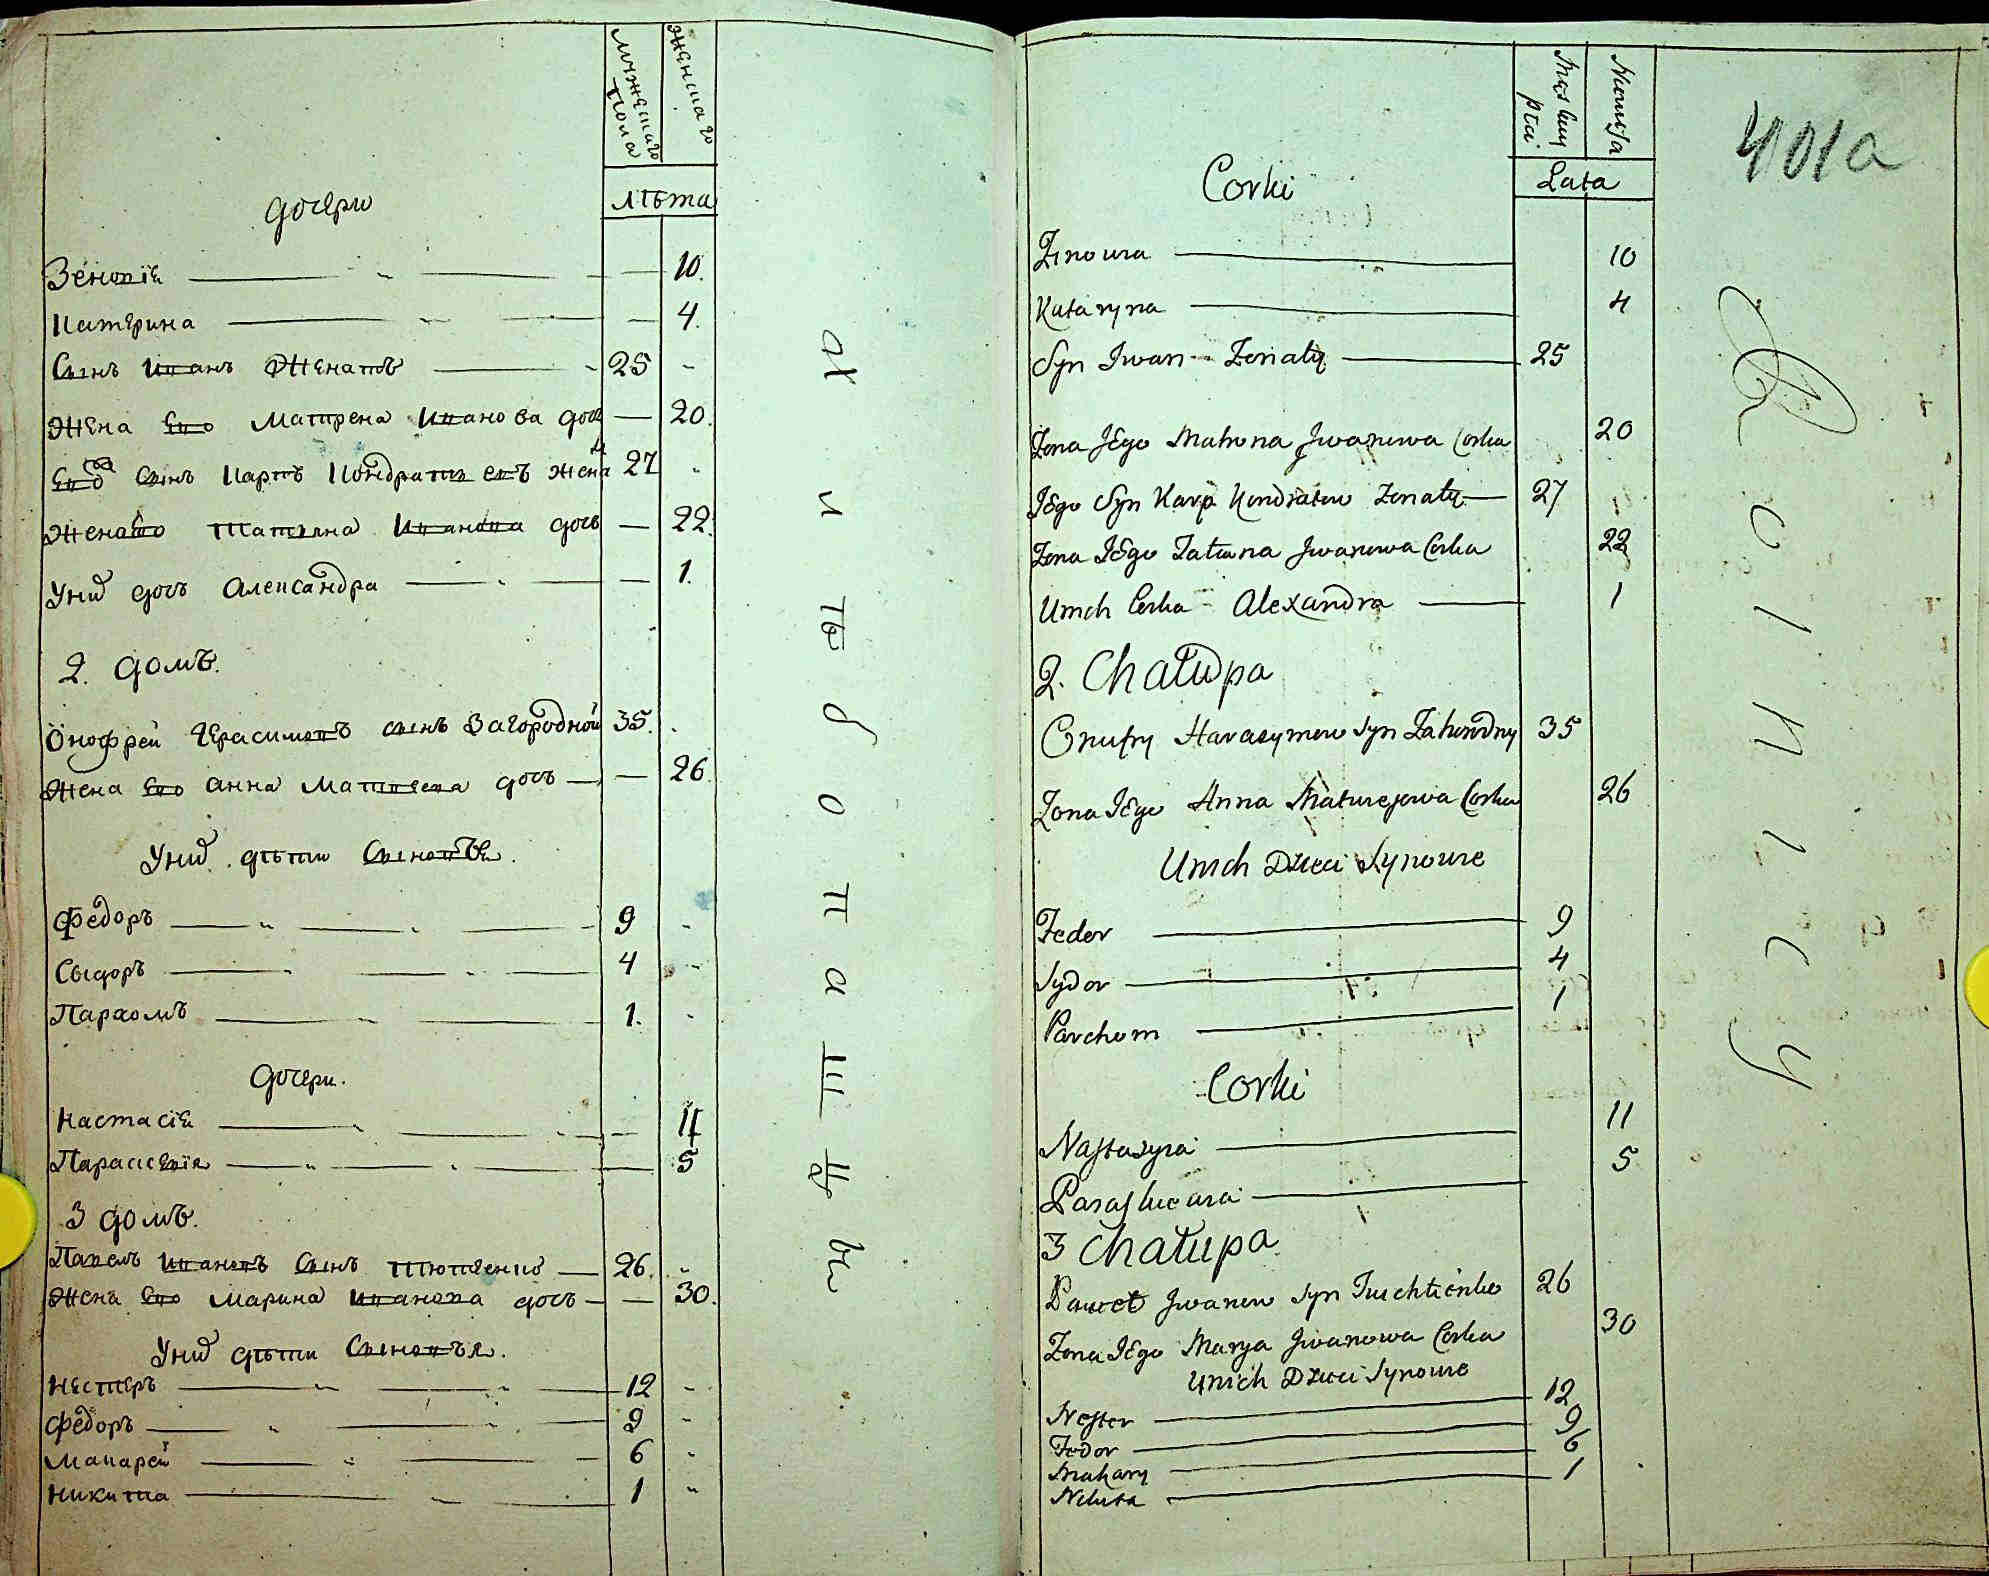 мужескаго пола
женскаго
лѣта
дочери
Зеновїя 10.
Катерина 4.
Сынъ Иванъ Женатъ 25
Жена Его Матрена Иванова дочь 20.
Его Сынъ Карпъ Кондратъевъ Жена 27
Жена Его Татіяна Иванова дочь 22.
Уних дочь Александра 1.
2. домъ.
Онофрей Герасимовъ сынъ Загородной 35.
Жена Его Анна Матвеева дочь 26.
Уних дѣти Сыновья.
Федоръ 9
Сыдоръ 4
Пархомъ 1.
Дочери.
Настасія 11
Параскевїя 5
3 домъ.
Павелъ Ивановъ Сынъ Тютченко 26.
Жена Его Марина Иванова дочь 30.
Уних дѣти Сыновья.
Нестеръ 12
Федоръ 9
Макарей 6
Никита 1
Хлѣбопашцы
Męskiey płci
Niewiescia
Lata
401a
Corki
Zinowia 10
Kataryna 4
Syn Iwan Zonaty 25
Zona Jego Matrona Jwanowa Corka 20
Jego Syn Karp Kondratew Zonaty 27
Zona Jego Tatiana Jwanowa Corka 22
Unich Corka Alexandra 1
2. Chałupa
Onufry Harasymow Syn Zahorodny 35
Zona Jego Anna Matwiejowa Corka 26
Unich Dzieci Synowie
Fedor 9
Sydor 4
Parchom 1
Corki
Nastasyia 11
Paraskiewia 5
3 Chałupa
Paweł Jwanow Syn Tiuchtienko 26
Zona Jego Marya Jwanowa Corka 30
Unich Dzieci Synowie
Nester 12
Fedor 9
Makary 6
Nikita 1
Rolnicy